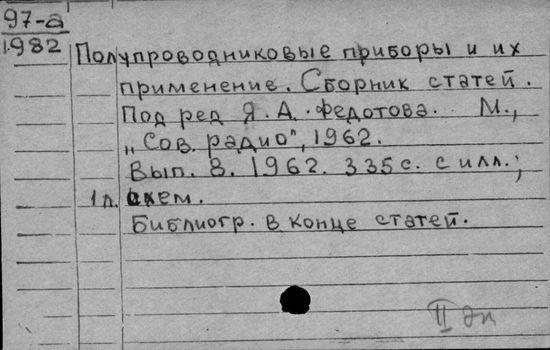 97-а
1982
Полупроводниковые приборы и их
применение. Сборник статей.
Под ред Я. А. Федотова. М.,
„Сов. радио", 1962.
Вып. 8. 1962. 335 с. с илл.;
1 л. схем.
Библиогр. в конце статей.
II